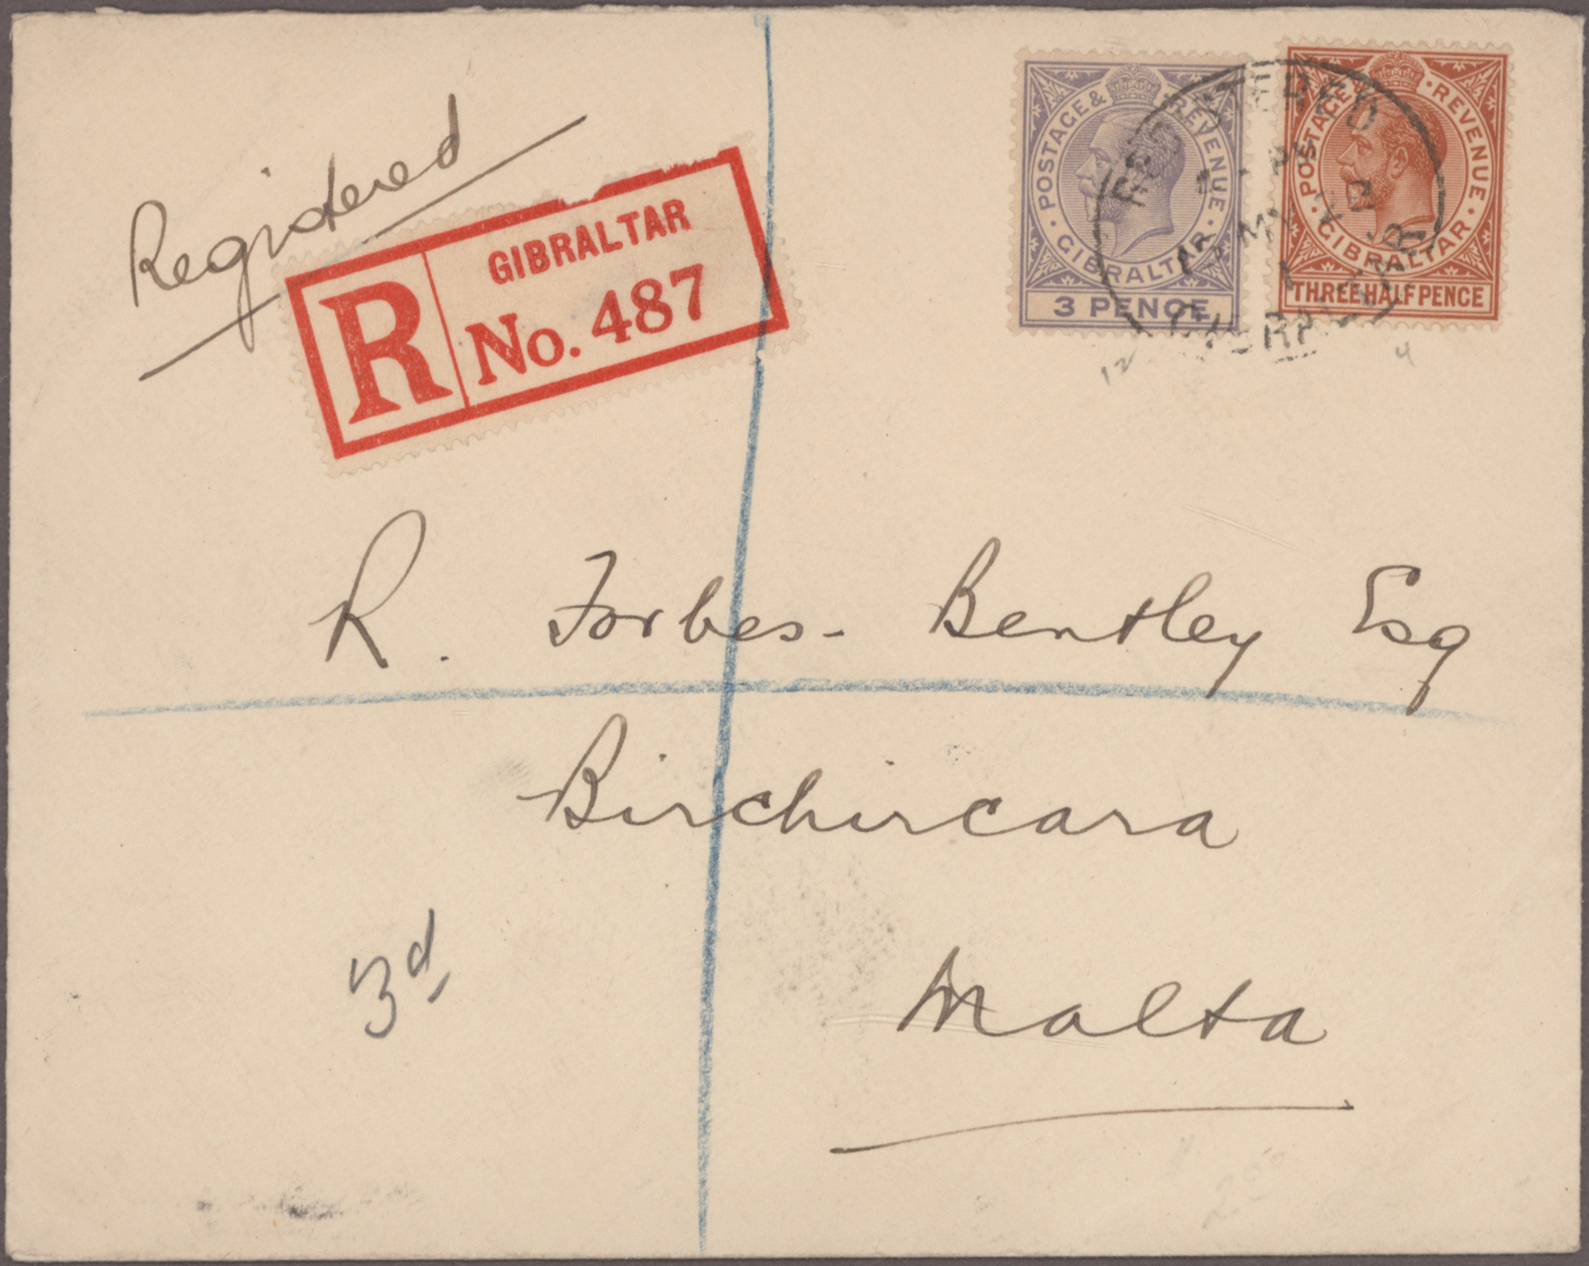 Registered
R
GIBRALTAR
No. 487
POSTAGE & REVENUE
GIBRALTAR
3 PENCE
POSTAGE & REVENUE
GIBRALTAR
THREE HALFPENCE
REGISTERED
GIBRALTAR
12
4
R. Forbes-Bentley Esq
Birchircara
Malta
3d